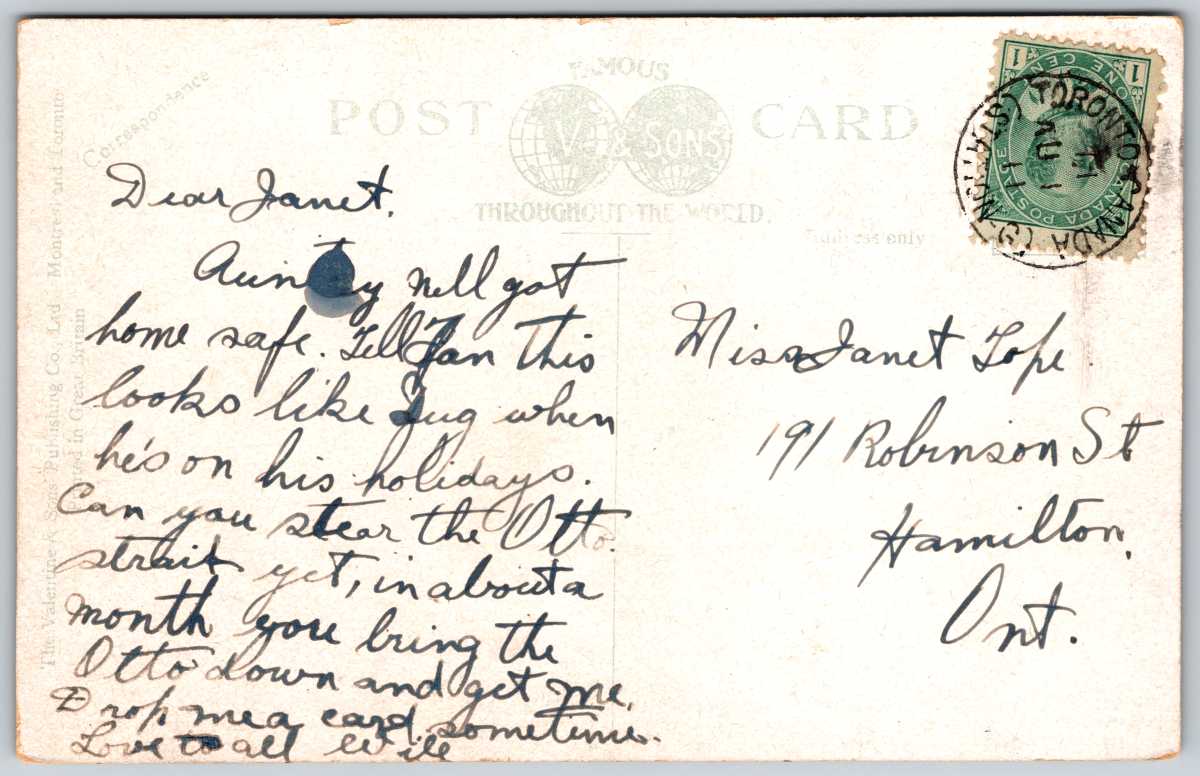 Correspondence
FAMOUS
POST CARD
V. & SONS
THROUGHOUT THE WORLD.
Address only
The Valentine & Sons' Publishing Co. Ltd Montreal and Toronto
Printed in Great Britain
ONE CENT
1 1
CANADA POSTAGE
TORONTO CANADA
AU 1
11
Dear Janet,
Auntey Nell got
home safe. Tell Jan this
looks like Jug when
he's on his holidays.
Can you stear the Otto
strait yet, in about a
month you bring the
Otto down and get me,
Drop me a card, sometime.
Love to all
Miss Janet Tope
191 Robinson St
Hamilton,
Ont.